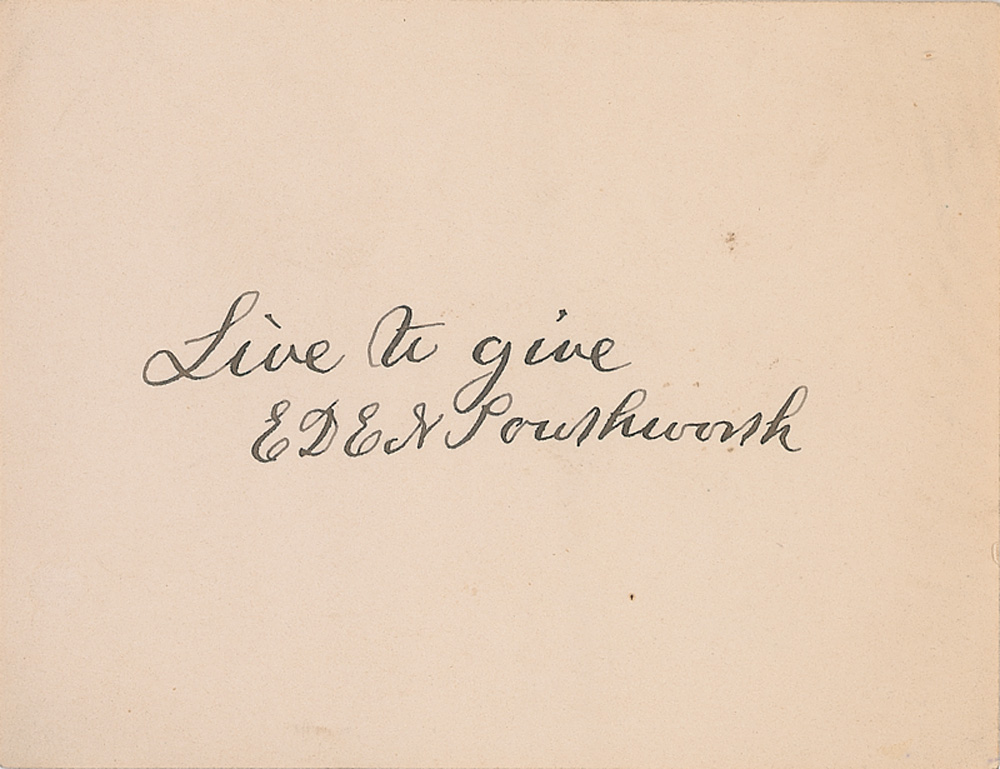 Live to give
EDEN Southworth